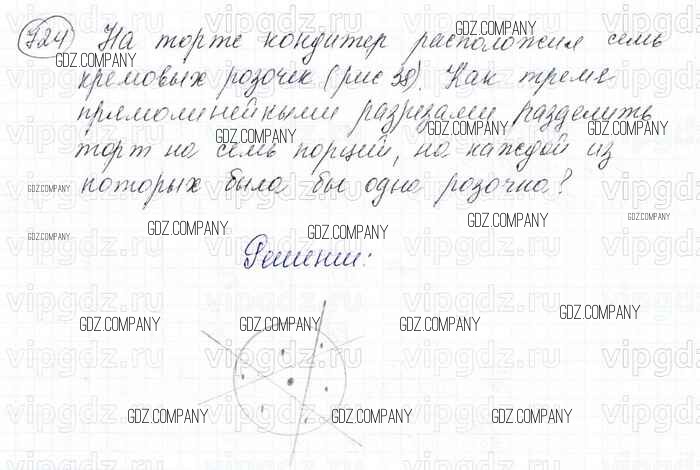 724 На торте кондитер расположил семь
кремовых розочек (рис 38). Как тремя
прямолинейными разрезами разделить
торт на семь порций, на каждой из
которых была бы одна розочка?
Решение:
GDZ.COMPANY
GDZ.COMPANY
GDZ.COMPANY
GDZ.COMPANY
GDZ.COMPANY
GDZ.COMPANY
GDZ.COMPANY
GDZ.COMPANY
GDZ.COMPANY
GDZ.COMPANY
GDZ.COMPANY
GDZ.COMPANY
GDZ.COMPANY
GDZ.COMPANY
GDZ.COMPANY
GDZ.COMPANY
GDZ.COMPANY
GDZ.COMPANY
vipgdz.ru
vipgdz.ru
vipgdz.ru
vipgdz.ru